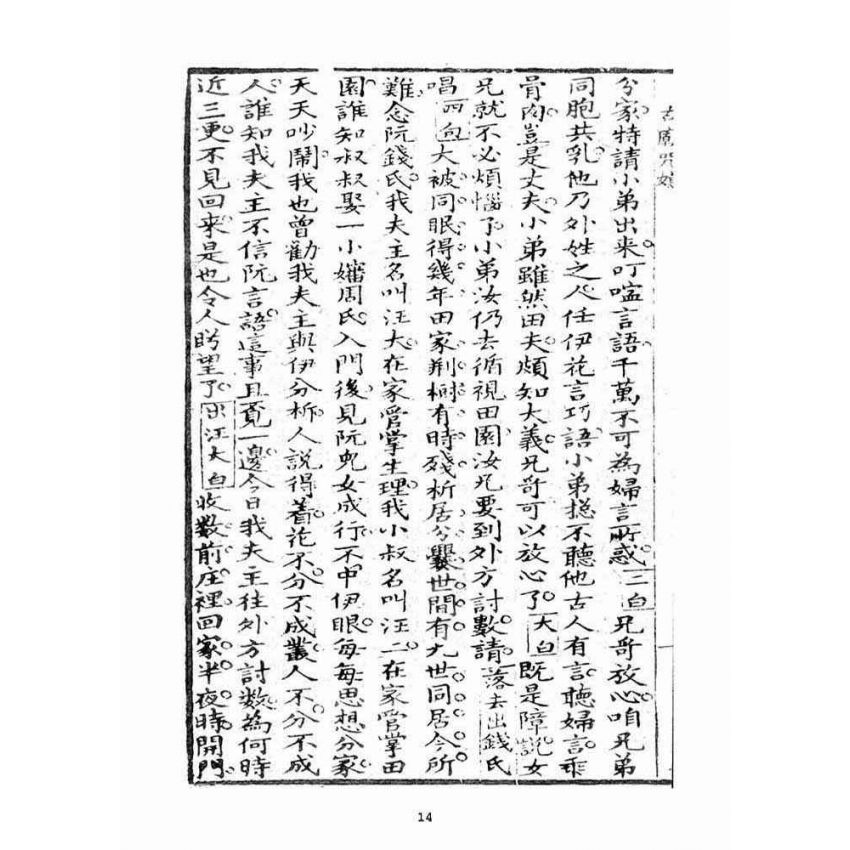 分家特請小弟出来叮嚀言語千萬不可為婦言所惑三白兄哥放心咱兄弟
同胞共乳他乃外姓之人任伊花言巧語小弟揔不聽他古人有言聽婦言乖
骨肉豈是丈夫小弟雖然田夫頗知大義兄哥可以放心了大白既是障説女
兄就不必煩惱了小弟汝仍去循視田園汝兄要到外方討數請落去出錢氏
唱西血大被同眠得幾年田家荆樹有時殘析居分爨世間有九世同居今所
難念阮錢氏我夫主名叫汪大在家管掌生理我小叔名叫汪二在家管掌田
園誰知叔叔娶一小嬸周氏入門後見阮兜女成行不中伊眼每每思想分家
天天吵鬧我也曾勸我夫主與伊分析人説得着花不分不成叢人不分不成
人誰知我夫主不信阮言語這事且覓一邊今日我夫主往外方討数為何時
近三更不見回来是也令人盻望了出汪大白收数前庄裡回家半夜時開門
14